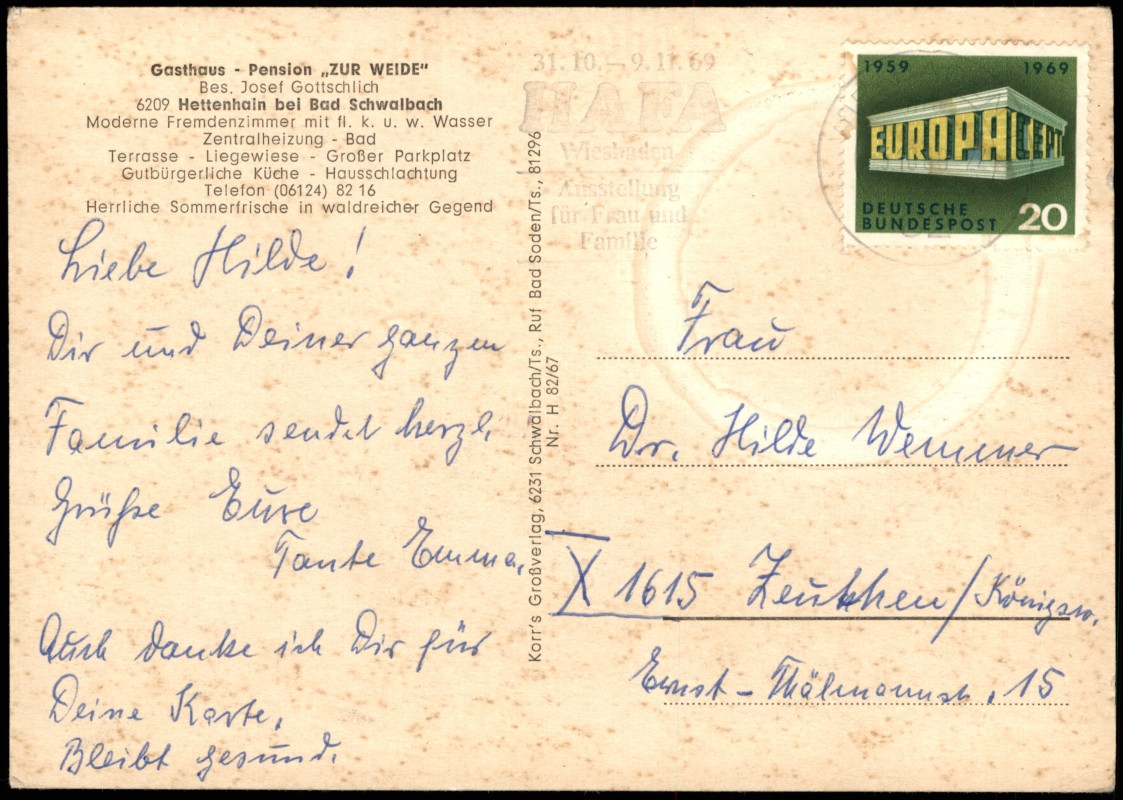 Gasthaus - Pension „ZUR WEIDE"
Bes. Josef Gottschlich
6209 Hettenhain bei Bad Schwalbach
Moderne Fremdenzimmer mit fl. k. u. w. Wasser
Zentralheizung - Bad
Terrasse - Liegewiese - Großer Parkplatz
Gutbürgerliche Küche - Hausschlachtung
Telefon (06124) 82 16
Herrliche Sommerfrische in waldreicher Gegend
Liebe Hilde!
Dir und Deiner ganzen
Familie sendet herzl.
Grüße Eure
Tante Emma.
Auch danke ich Dir für
Deine Karte.
Bleibt gesund.
Korr's Großverlag, 6231 Schwalbach/Ts., Ruf Bad Soden/Ts., 81296
Nr. H 82/67
31.10.–9.11.69
HAFA
Wiesbaden
Ausstellung
für Frau und
Familie
1959 1969
EUROPA CEPT
DEUTSCHE
BUNDESPOST 20
Frau
Dr. Hilde Wemmer
X 1615 Zeuthen/Königsw.
Ernst-Thälmannstr. 15